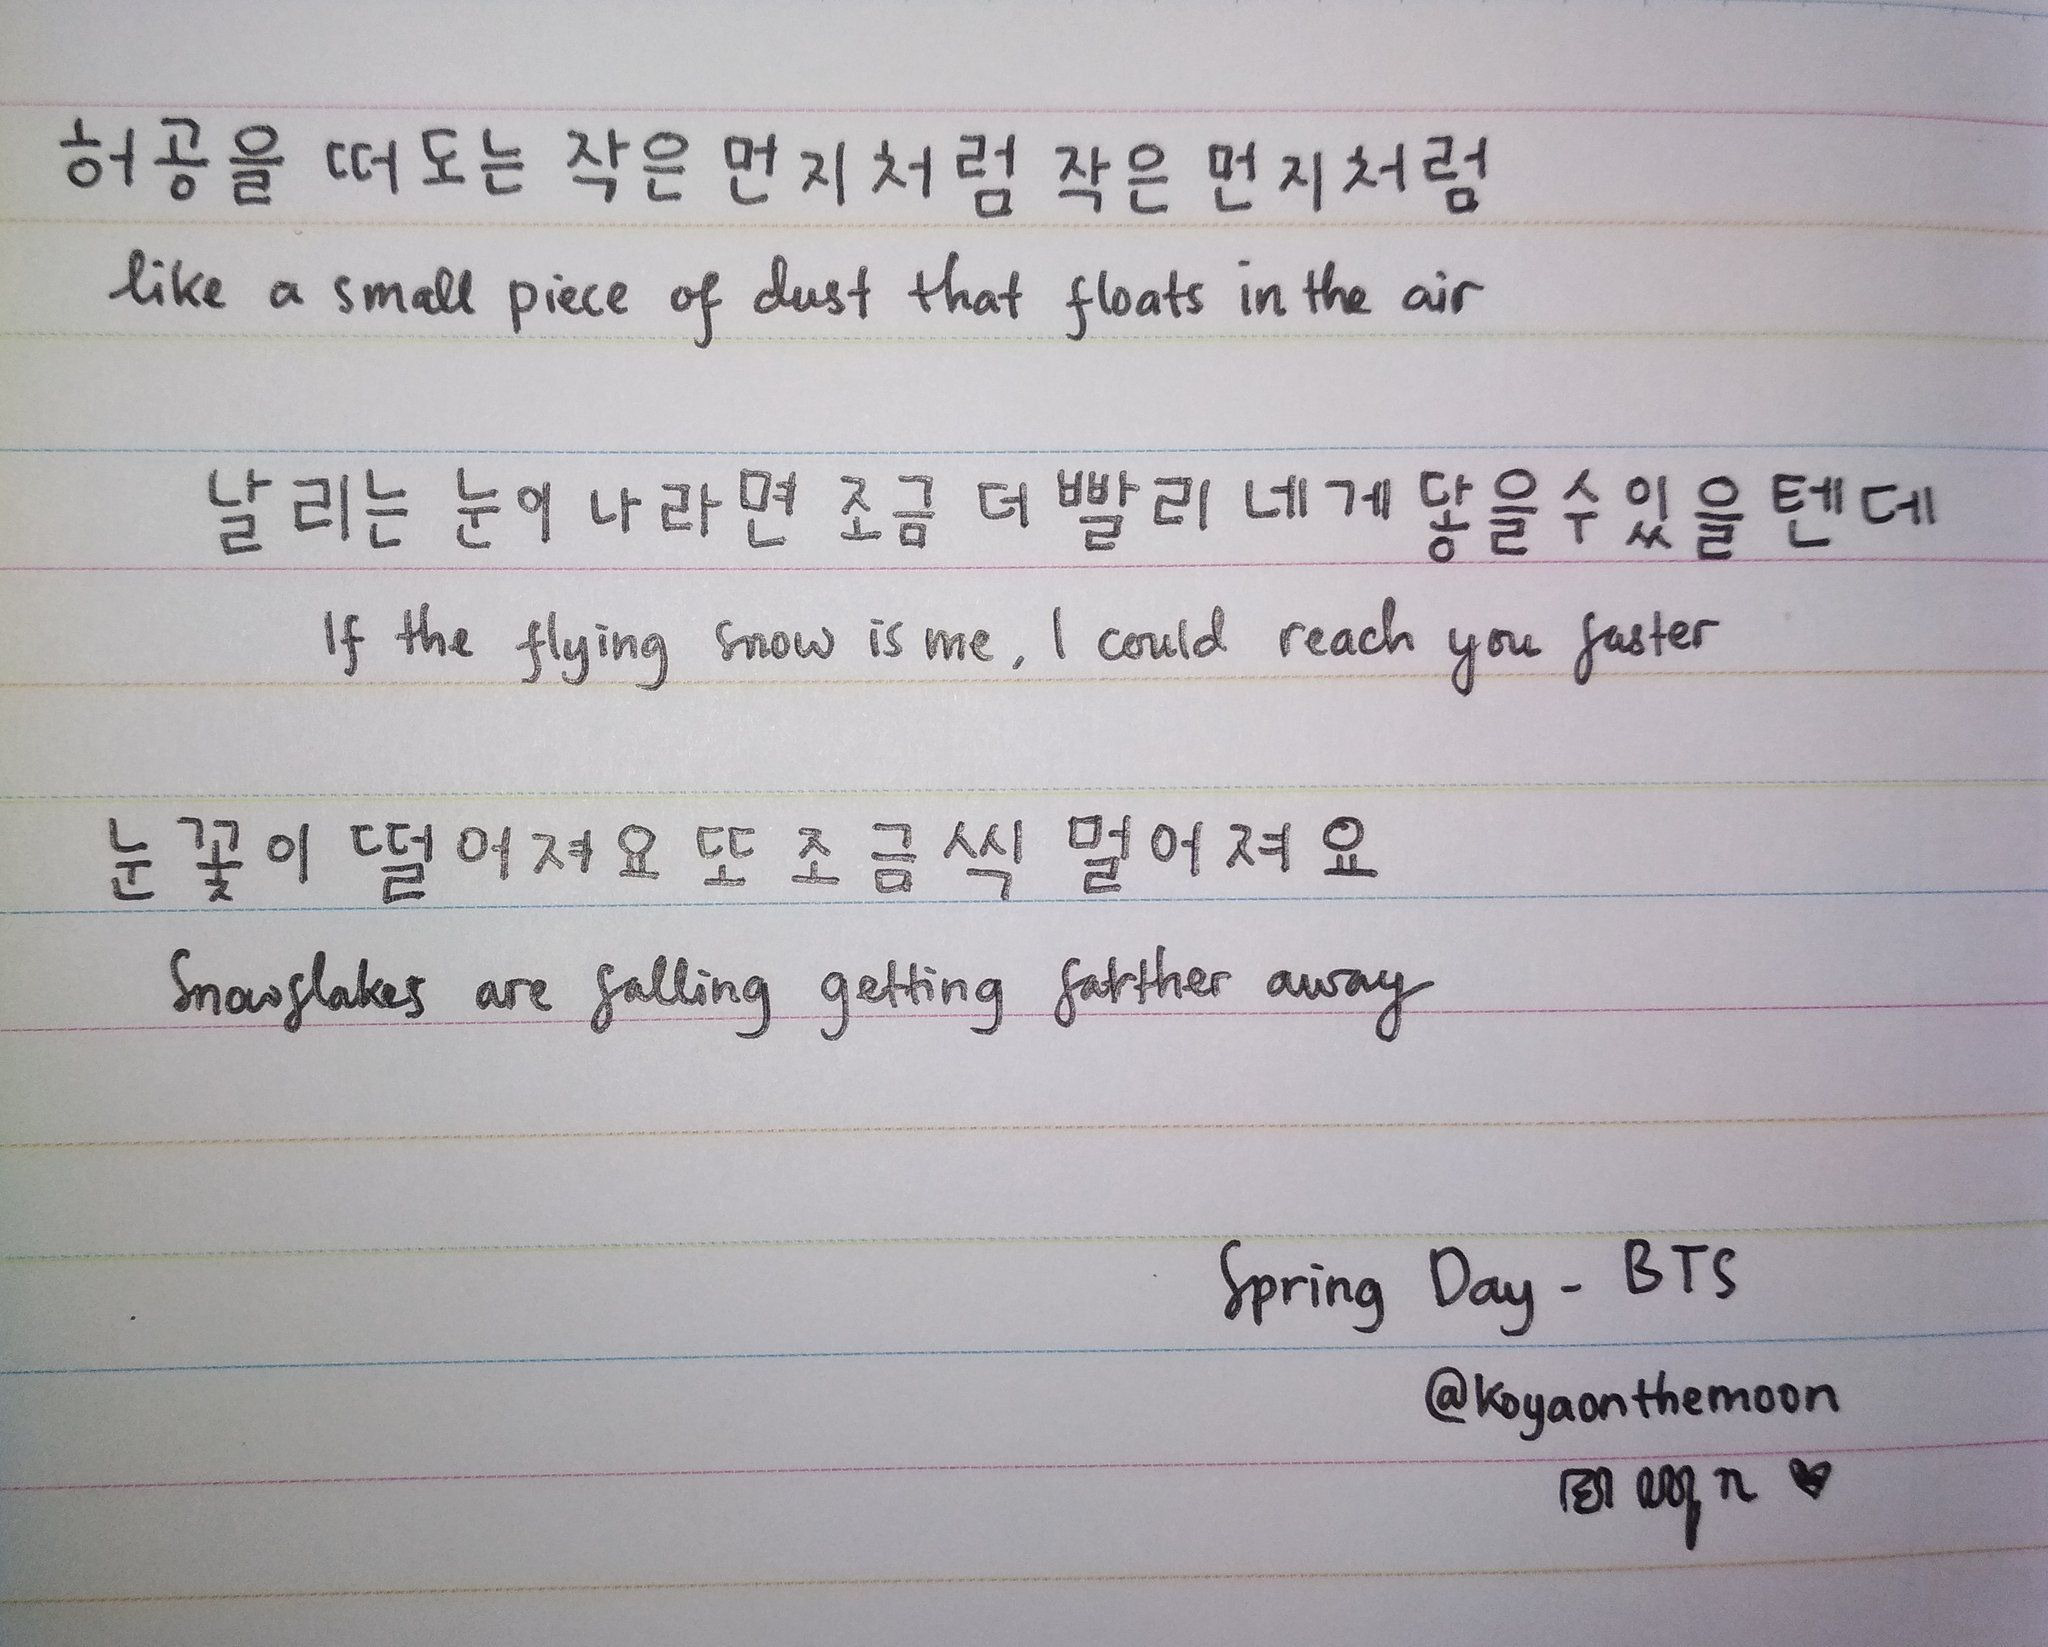 허공을 떠도는 작은 먼지처럼 작은 먼지처럼
like a small piece of dust that floats in the air
날리는 눈이 나라면 조금 더 빨리 네게 닿을 수 있을 텐데
If the flying snow is me, I could reach you faster
눈꽃이 떨어져요 또 조금씩 멀어져요
Snowflakes are falling getting farther away
Spring Day - BTS
@koyaonthemoon